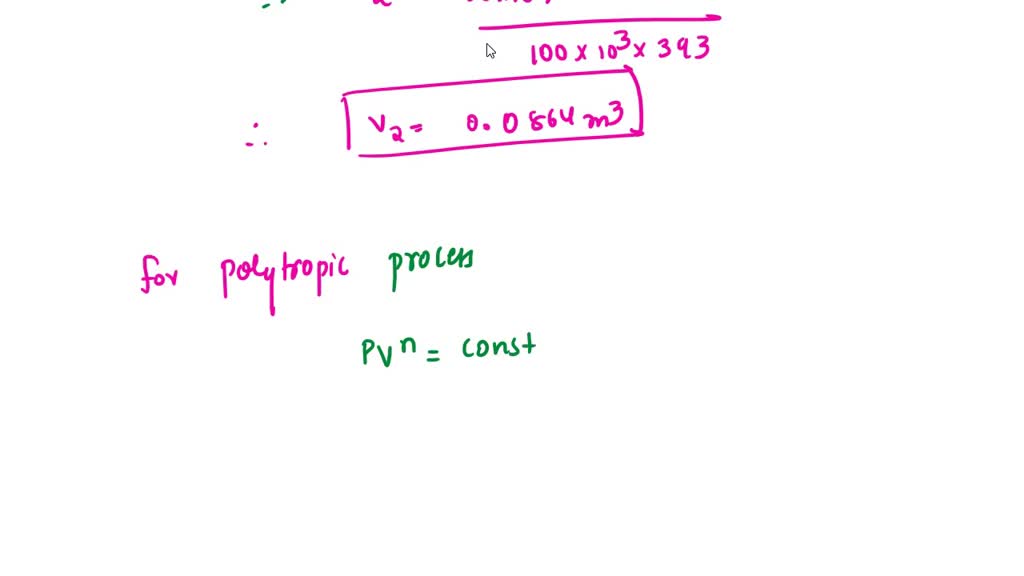 2
100 x 10³ x 393
∴ V₂ = 0.0864 m³
for polytropic process
PVⁿ = const